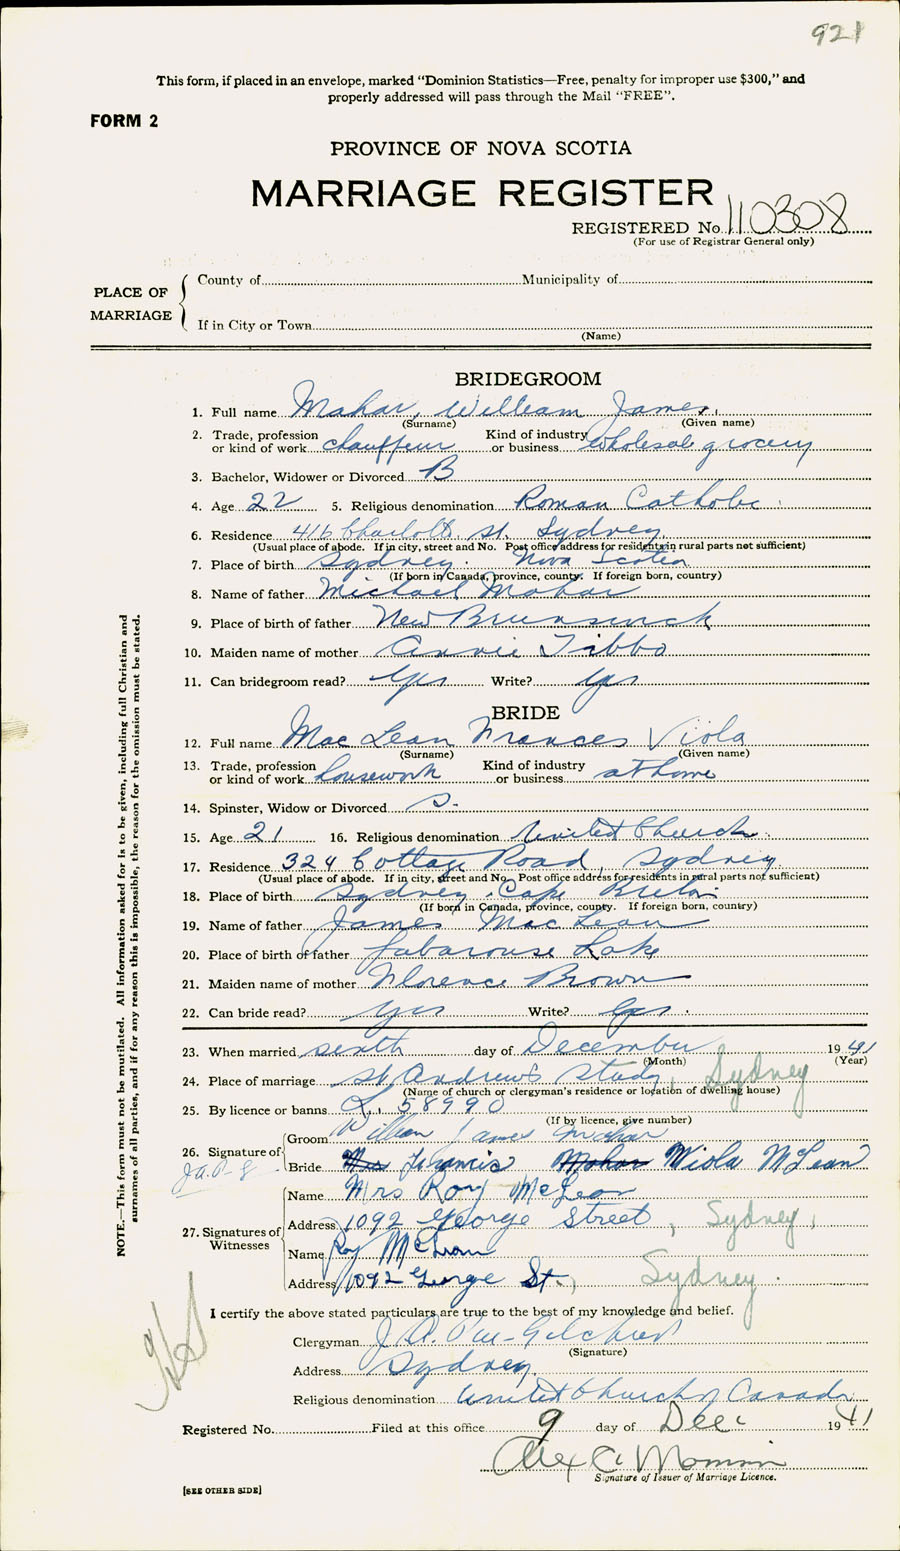 921
This form, if placed in an envelope, marked "Dominion Statistics—Free, penalty for improper use $300," and
properly addressed will pass through the Mail "FREE".
FORM 2
PROVINCE OF NOVA SCOTIA
MARRIAGE REGISTER
REGISTERED No. 110308
(For use of Registrar General only)
PLACE OF MARRIAGE
County of Municipality of
If in City or Town
(Name)
NOTE.—This form must not be mutilated. All information asked for is to be given, including full Christian and
surnames of all parties, and if for any reason this is impossible, the reason for the omission must be stated.
BRIDEGROOM
1. Full name Mahar, William James
(Surname) (Given name)
2. Trade, profession or kind of work chauffeur Kind of industry or business wholesale grocery
3. Bachelor, Widower or Divorced B
4. Age 22 5. Religious denomination Roman Catholic
6. Residence 416 Charlotte St. Sydney
(Usual place of abode. If in city, street and No. Post office address for residents in rural parts not sufficient)
7. Place of birth Sydney. Nova Scotia
(If born in Canada, province, county. If foreign born, country)
8. Name of father Michael Mahar
9. Place of birth of father New Brunswick
10. Maiden name of mother Annie Tibbo
11. Can bridegroom read? Yes Write? Yes
BRIDE
12. Full name Mac Lean Frances Viola
(Surname) (Given name)
13. Trade, profession or kind of work housework Kind of industry or business at home
14. Spinster, Widow or Divorced S.
15. Age 21 16. Religious denomination United Church
17. Residence 324 Cottage Road, Sydney
(Usual place of abode. If in city, street and No. Post office address for residents in rural parts not sufficient)
18. Place of birth Sydney, Cape Breton
(If born in Canada, province, county. If foreign born, country)
19. Name of father James Mac Lean
20. Place of birth of father Gabarouse Lake
21. Maiden name of mother Florence Brown
22. Can bride read? Yes Write? Yes.
23. When married sixth day of December 1941
(Month) (Year)
24. Place of marriage St. Andrew's Study, Sydney
(Name of church or clergyman's residence or location of dwelling house)
25. By licence or banns L. 58990
(If by licence, give number)
26. Signature of Groom William James Mahar
J.A.P-G. Bride Mrs Francis Mahar Viola McLean
27. Signatures of Witnesses
Name Mrs Roy McLean
Address 1092 George Street, Sydney,
Name Roy McLean
Address 1092 George St., Sydney.
I certify the above stated particulars are true to the best of my knowledge and belief.
Clergyman J. A. Pue-Gilchrist
(Signature)
Address Sydney
Religious denomination United Church of Canada
Registered No. Filed at this office 9 day of Dec. 1941
Signature of Issuer of Marriage Licence.
[SEE OTHER SIDE]